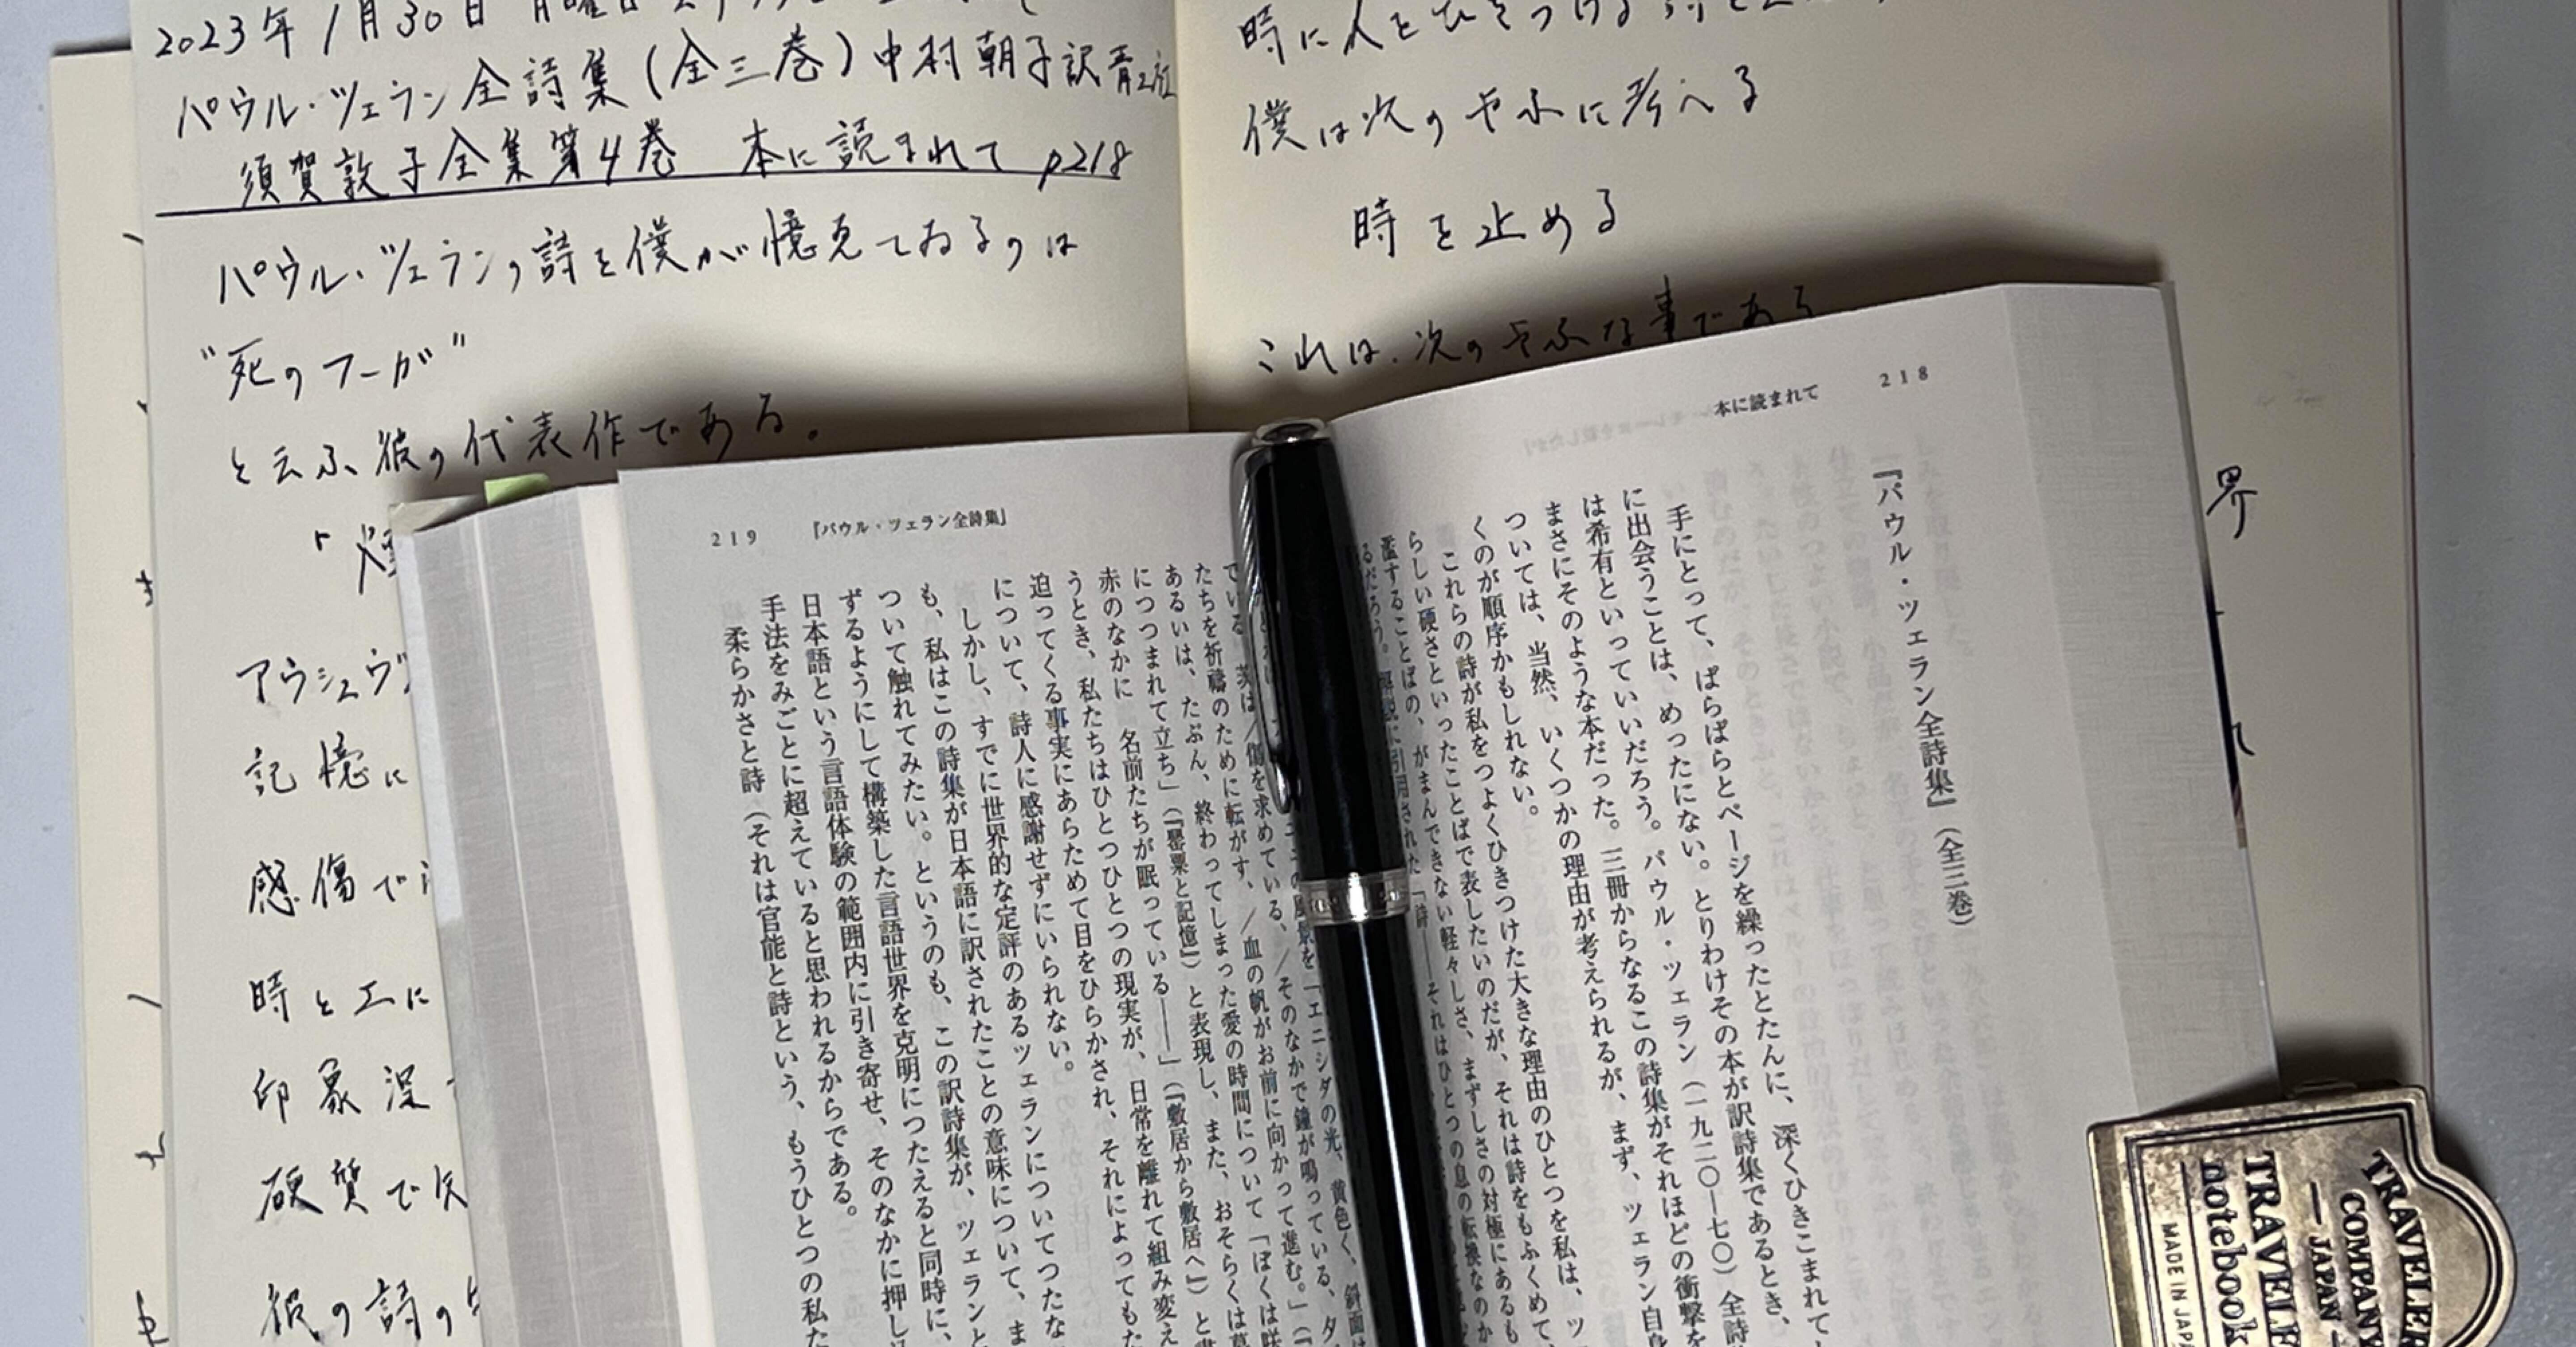 2023年1月30日 月曜日
パウル・ツェラン全詩集(全三巻)中村朝子訳 青土社
須賀敦子全集第4巻 本に読まれて p218
パウル・ツェランの詩を僕が憶えてゐるのは
"死のフーガ"
と云ふ彼の代表作である。
アウシュヴ
記憶に
感傷で
時と工に
印象深
硬質で
彼の詩の
時に人をひきつける
僕は次のやふに考へる
時を止める
これは、次のやふな事である
界
218
本に読まれて
『パウル・ツェラン全詩集』(全三巻)
手にとって、ぱらぱらとページを繰ったとたんに、深くひきこまれて
に出会うことは、めったにない。とりわけその本が訳詩集であるとき、
は希有といっていいだろう。パウル・ツェラン(一九二〇―七〇)全詩
まさにそのような本だった。三冊からなるこの詩集がそれほどの衝撃を
ついては、当然、いくつかの理由が考えられるが、まず、ツェラン自身
くのが順序かもしれない。
これらの詩が私をつよくひきつけた大きな理由のひとつを私は、ツ
らしい硬さといったことばで表したいのだが、それは詩をもふくめて、
濫することばの、がまんできない軽々しさ、まずしさの対極にあるも
るだろう。解説に引用された「詩――それはひとつの息の転換なのか
219
『パウル・ツェラン全詩集』
「エニシダの光、黄色く、斜面は
ている、/傷を求めている、/そのなかで鐘が鳴っている、夕
たちを祈禱のために転がす、/血の帆がお前に向かって進む。」(『
あるいは、たぶん、終わってしまった愛の時間について「ぼくは咲
につつまれて立ち」(『罌粟と記憶』)と表現し、また、おそらくは墓
赤のなかに 名前たちが眠っている――」(『敷居から敷居へ』)と書
うとき、私たちはひとつひとつの現実が、日常を離れて組み変え
迫ってくる事実にあらためて目をひらかされ、それによってもた
について、詩人に感謝せずにいられない。
しかし、すでに世界的な定評のあるツェランについてつたな
も、私はこの詩集が日本語に訳されたことの意味について、ま
ついて触れてみたい。というのも、この訳詩集が、ツェランと
ずるようにして構築した言語世界を克明につたえると同時に、
日本語という言語体験の範囲内に引き寄せ、そのなかに押し
手法をみごとに超えていると思われるからである。
柔らかさと詩(それは官能と詩という、もうひとつの私た
TRAVELER'S
COMPANY
JAPAN
TRAVELE
notebook
MADE IN JAPA